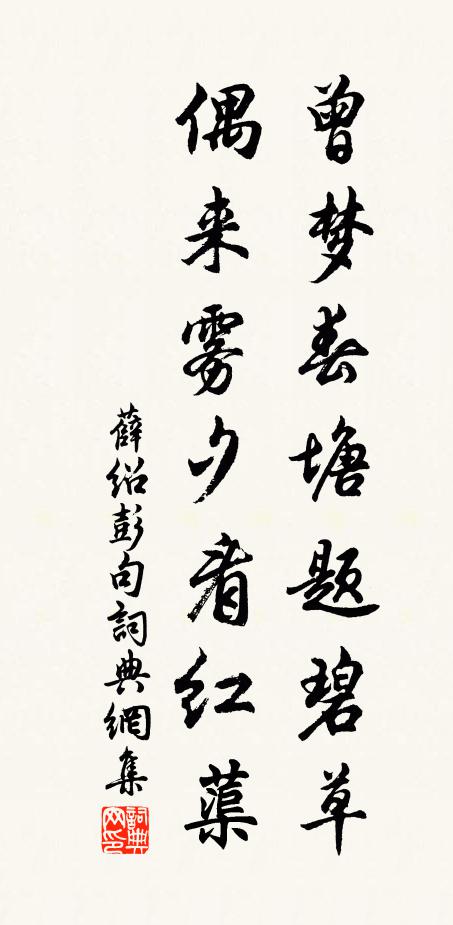 曾梦春塘题碧草
偶来雾夕看红蕖
薛绍彭句詞典網集
詞典网印